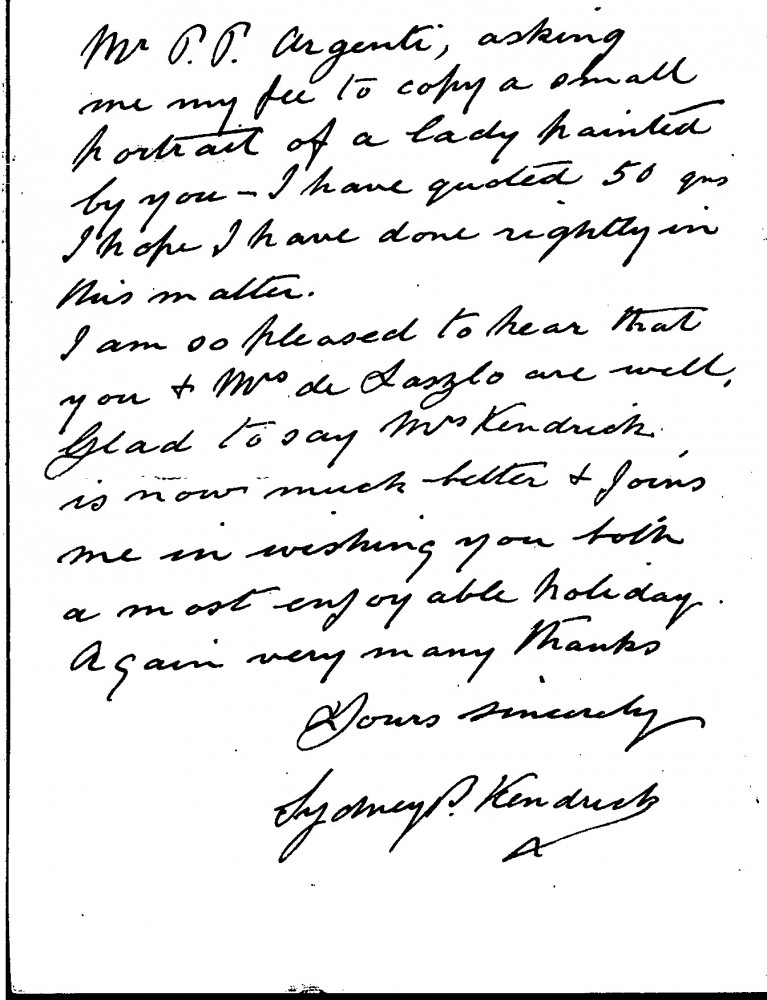 Mr P. P. Argenti, asking
me my fee to copy a small
portrait of a lady painted
by you – I have quoted 50 gns
I hope I have done rightly in
this matter.
I am so pleased to hear that
you & Mrs de Laszlo are well,
Glad to say Mrs Kendrick
is now much better & joins
me in wishing you both
a most enjoyable holiday.
Again very many thanks
Yours sincerely
Sydney P. Kendrick